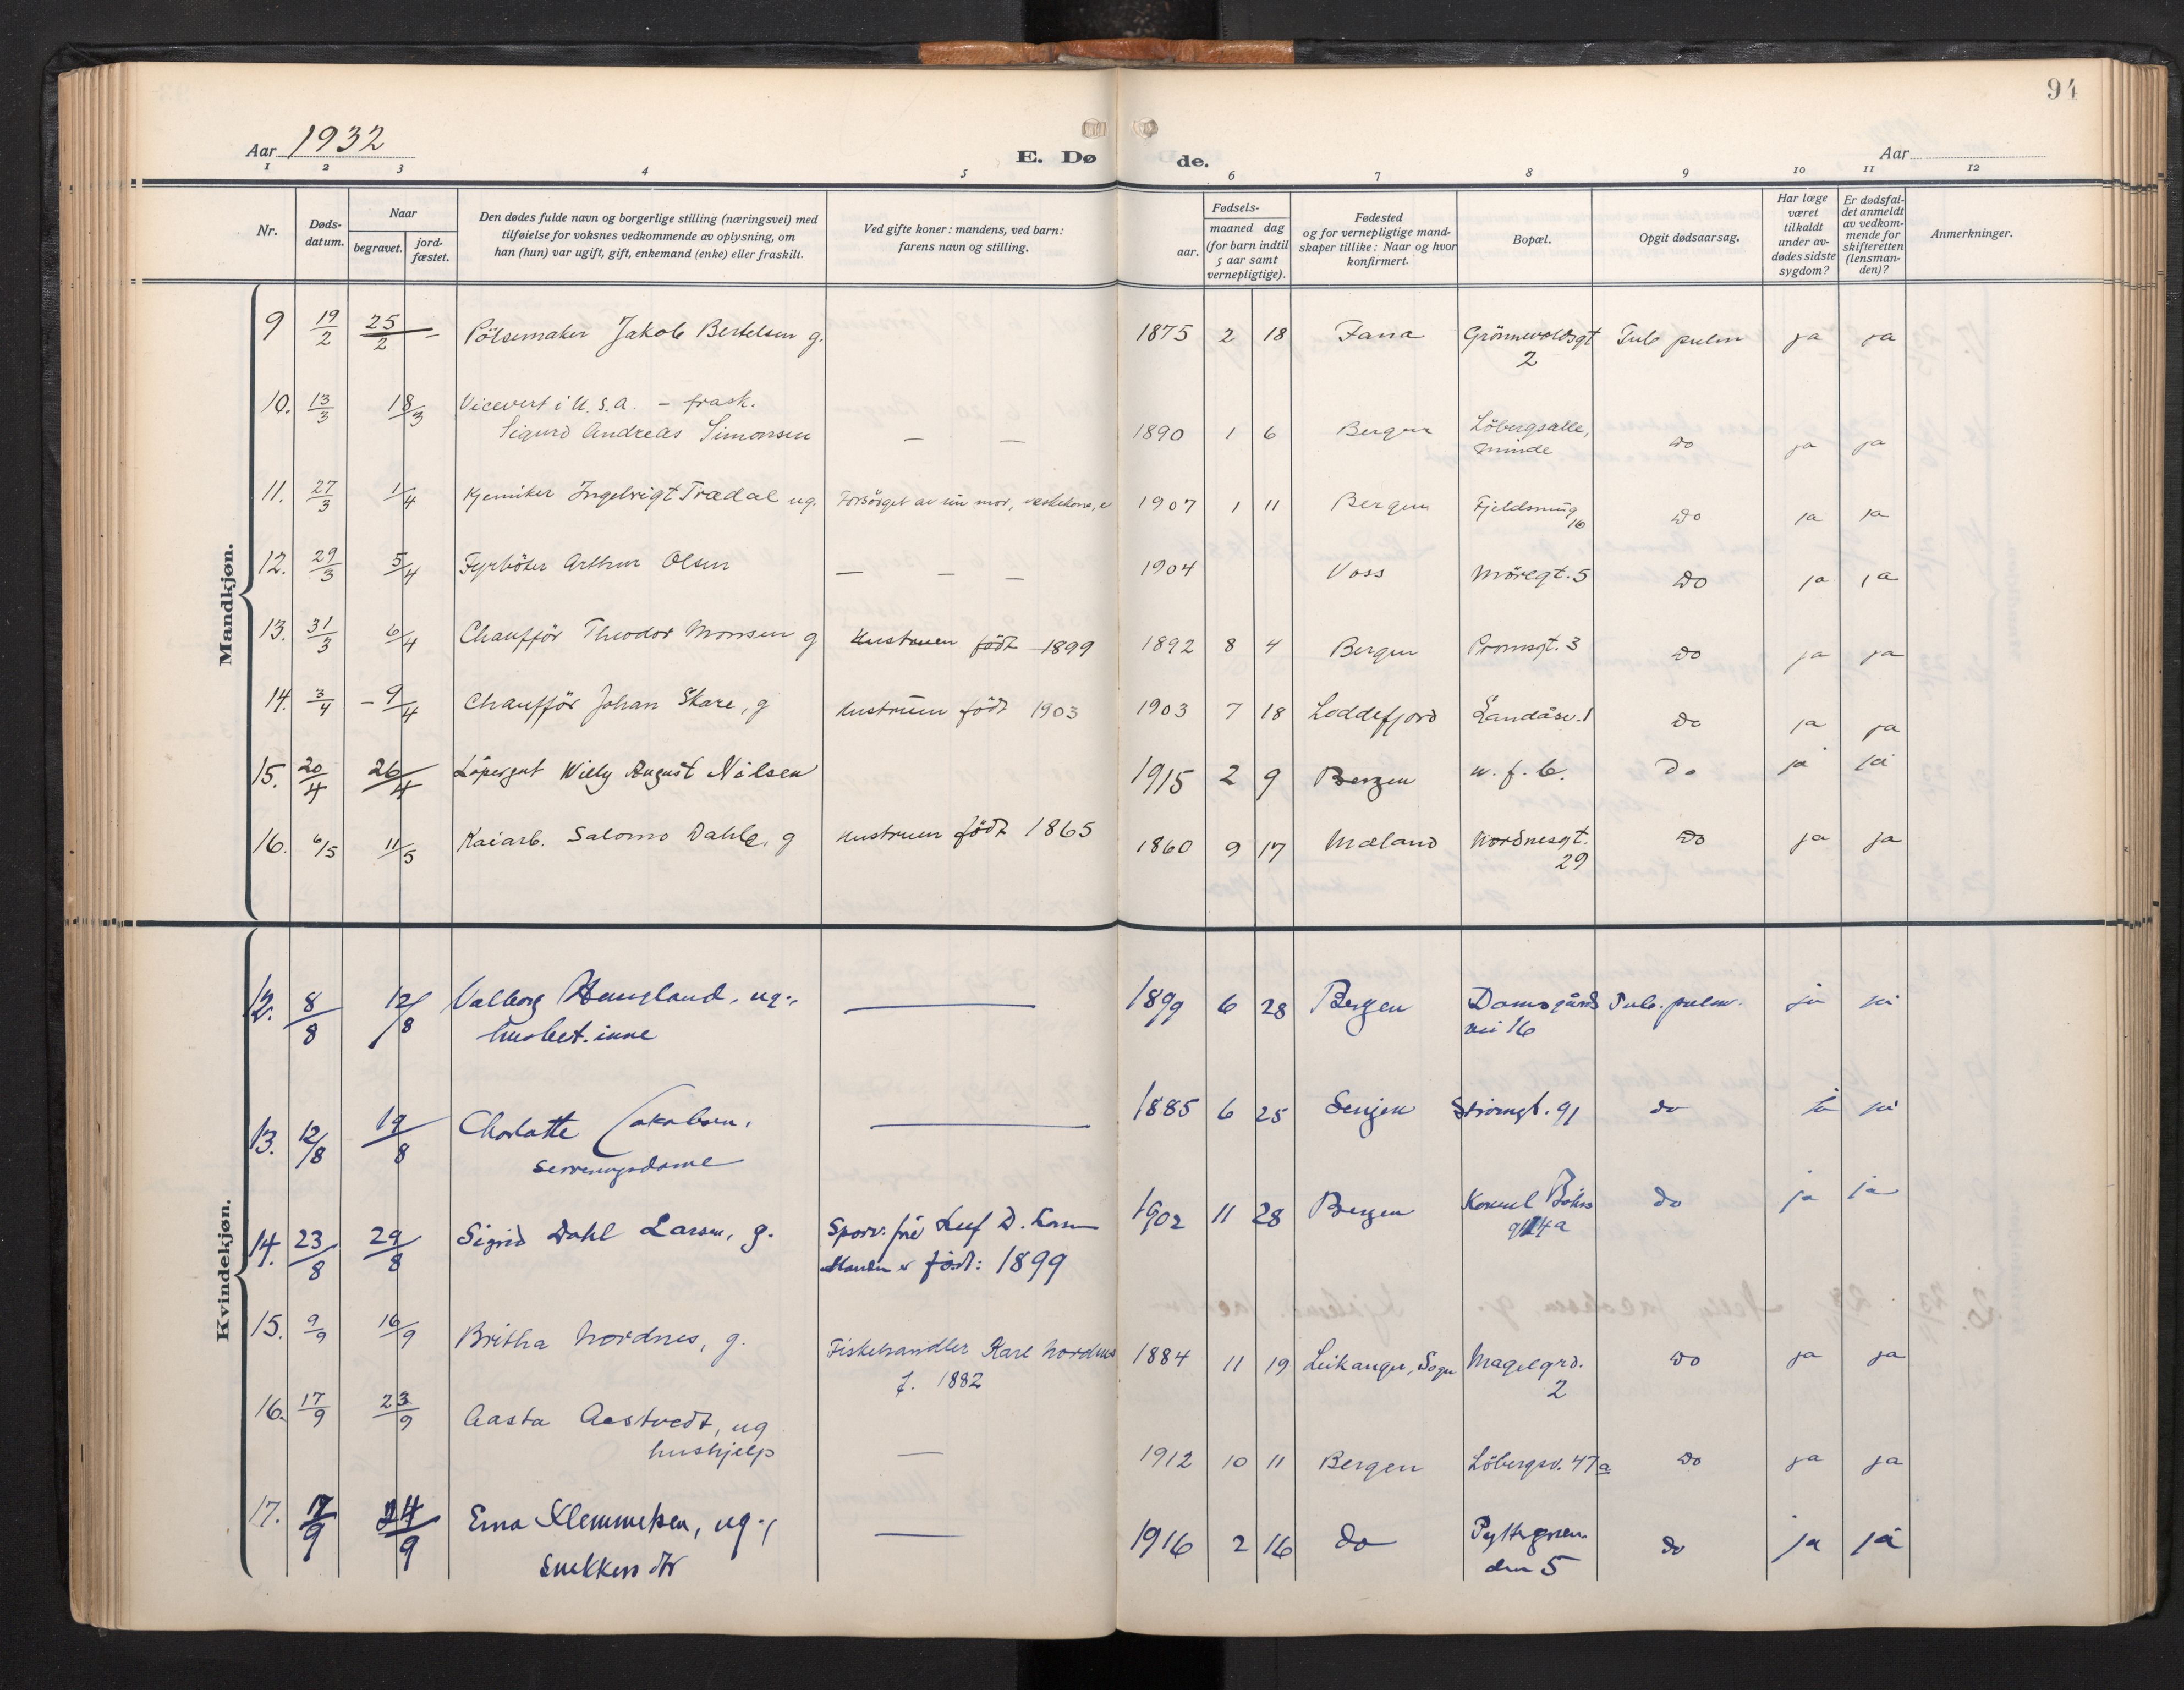 94
Aar 1932
E. Dø de.
Aar
1 2 3 4 5 6 7 8 9 10 11 12
Nr.
Døds-
datum.
Naar
begravet.
jord-
fæstet.
Den dødes fulde navn og borgerlige stilling (næringsvei) med
tilføielse for voksnes vedkommende av oplysning, om
han (hun) var ugift, gift, enkemand (enke) eller fraskilt.
Ved gifte koner: mandens, ved barn:
farens navn og stilling.
Fødsels-
aar.
maaned dag
(for barn indtil
5 aar samt
vernepligtige).
Fødested
og for vernepligtige mand-
skaper tillike: Naar og hvor
konfirmert.
Bopæl.
Opgit dødsaarsag.
Har læge
været
tilkaldt
under av-
dødes sidste
sygdom?
Er dødsfal-
det anmeldt
av vedkom-
mende for
skifteretten
(lensman-
den)?
Anmerkninger.
Mandkjøn.
9 19/2 25/2 – Pölsemaker Jakob Bertelsen g. 1875 2 18 Fana Grönnevoldsgt Tub pulm ja ja
2
10. 13/3 18/3 Vicevert i U.S.a. – frask.
Sigurd Andreas Simonsen — — 1890 1 6 Bergen Löbergsalle, Do ja ja
minde
11. 27/3 1/4 Kjemiker Ingebrigt Trædal ug. Forsörget av sin mor, vaskekone, e 1907 1 11 Bergen Fjeldsmug Do ja ja
16
12. 29/3 5/4 Fyrböter Arthur Olsen — — — 1904 Voss Möregt. 5 Do ja ja
13. 31/3 6/4 Chaufför Theodor Monsen g Hustruen födt 1899 1892 8 4 Bergen Promsgt. 3 Do ja ja
14. 3/4 – 9/4 Chaufför Johan Skare, g Hustruen födt 1903 1903 7 18 Loddefjord Landåsv. 1 Do ja ja
15. 20/4 26/4 Löpergut Willy August Nilsen 1915 2 9 Bergen u. f. b. Do ja ja
16. 6/5 11/5 Kaiarb. Salomo Dahle, g Hustruen födt 1865 1860 9 17 Mæland Nordnesgt. Do ja ja
29
Kvindekjøn.
12. 8/8 12/8 Valborg Haugland, ug., — 1899 6 28 Bergen Damsgårds Tub. pulm. ja ja
husbet.inne vei 16
13. 12/8 19/8 Charlotte Jakobsen, — 1885 6 25 Senjen Strömgt. 91 do ja ja
serveringsdame
14. 23/8 29/8 Sigrid Dahl Larsen, g. Sporv. Leif D. Larsen 1902 11 28 Bergen Konsul Börs do ja ja
Manden er født: 1899 gt 4a
15. 9/9 16/9 Britha Nordnes, g. Fiskehandler Karl Nordnes 1884 11 19 Leikanger, Sogn Magelgrd. Do ja ja
f. 1882 2
16. 17/9 23/9 Aasta Aastvedt, ug — 1912 10 11 Bergen Löbergsv. 47a Do ja ja
hushjelp
17. 17/9 24/9 Erna Klemmetsen, ug., — 1916 2 16 do Pyttergren. do ja ja
Snekkers dtr den 5